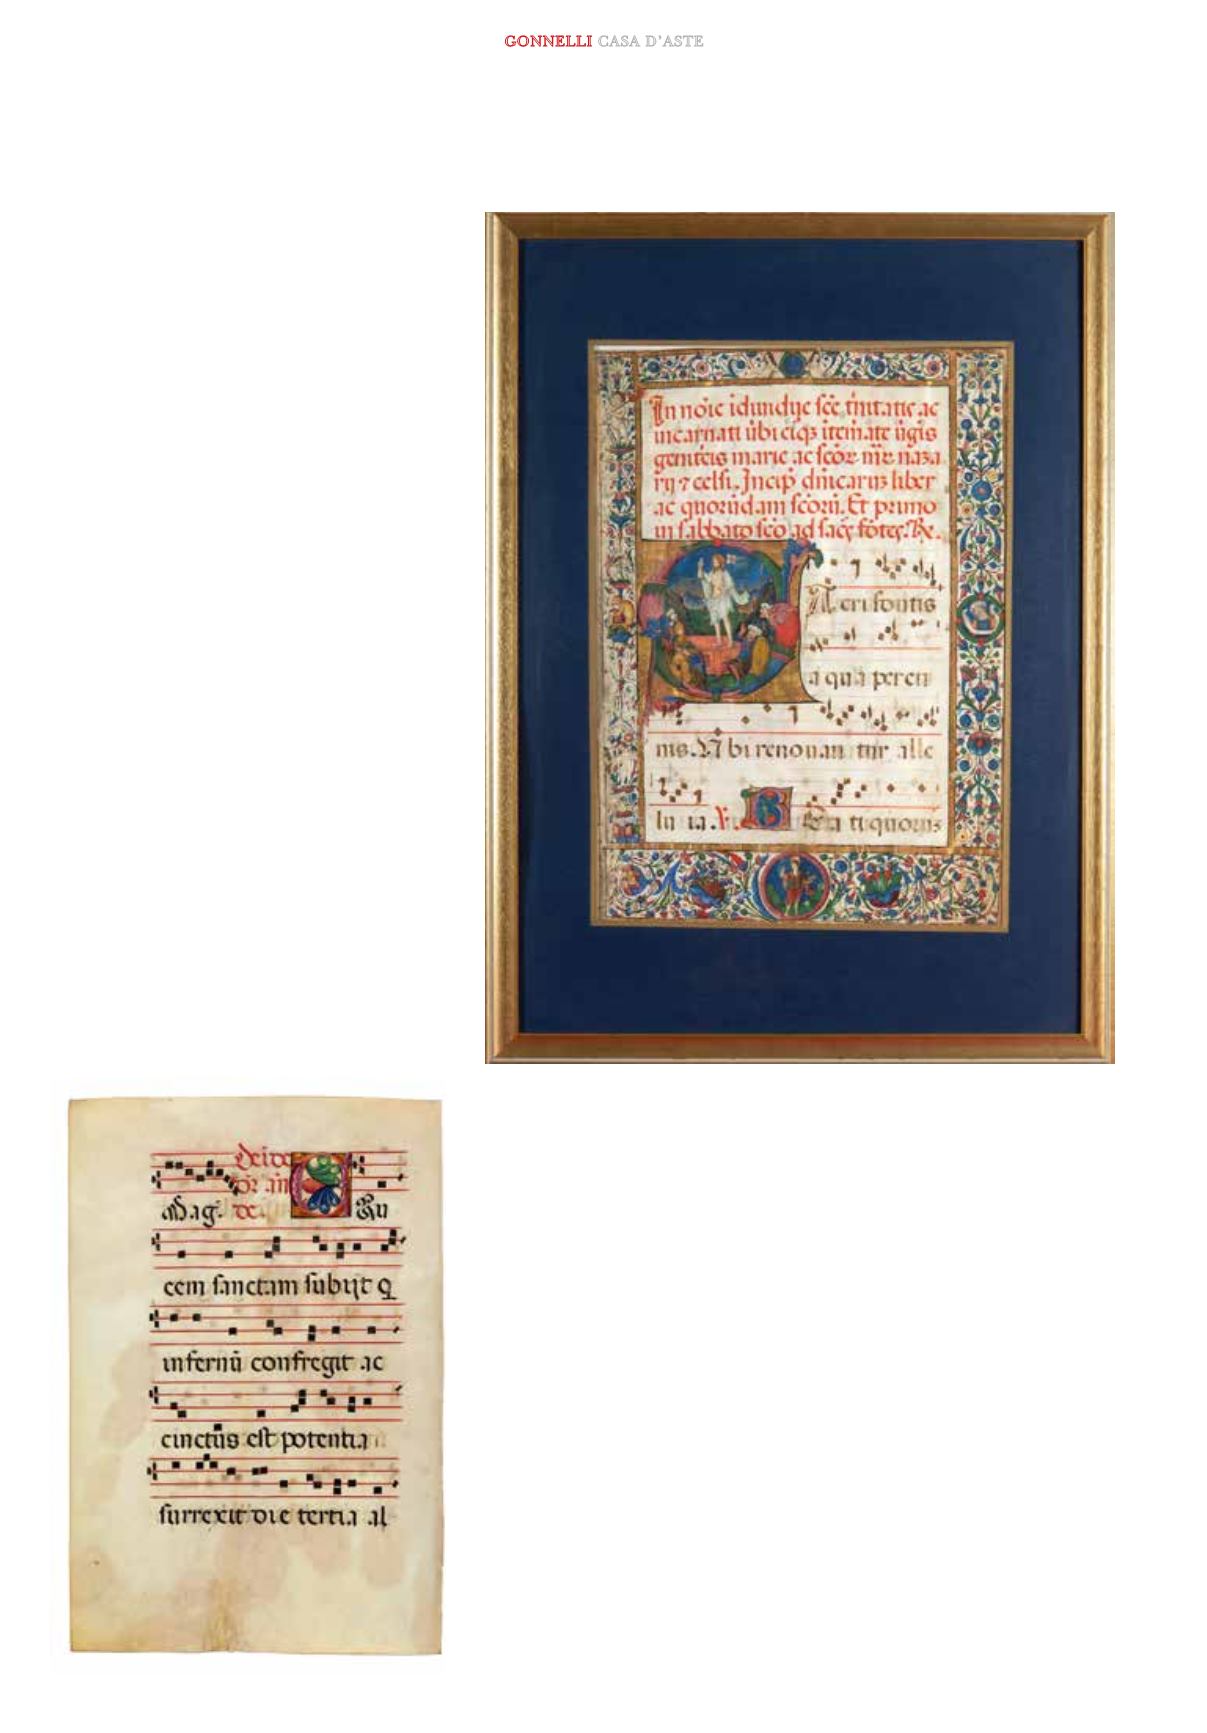 GONNELLI CASA D'ASTE
In noie idiuidue sce trinitatis ac
incarnati ubi eiqz itemate ugis
genitcis marie ac scoz mr naza
rij ⁊ celsi. Incip dnicariz liber
ac quorudam scoru. Et primo
in sabbato sco ad sacs
Acri fontis
a qua peren
nis. Ubi renouan tur alle
lu ia. V. B Ea ti quoruz
or in
Mag. de. Cru
cem sanctam subijt q
infernu confregit ac
cinctus est potentia
surrexit die tertia al